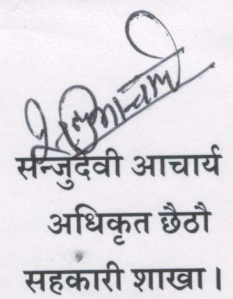 सन्जुदेवी आचार्य
अधिकृत छैठौ
सहकारी शाखा।